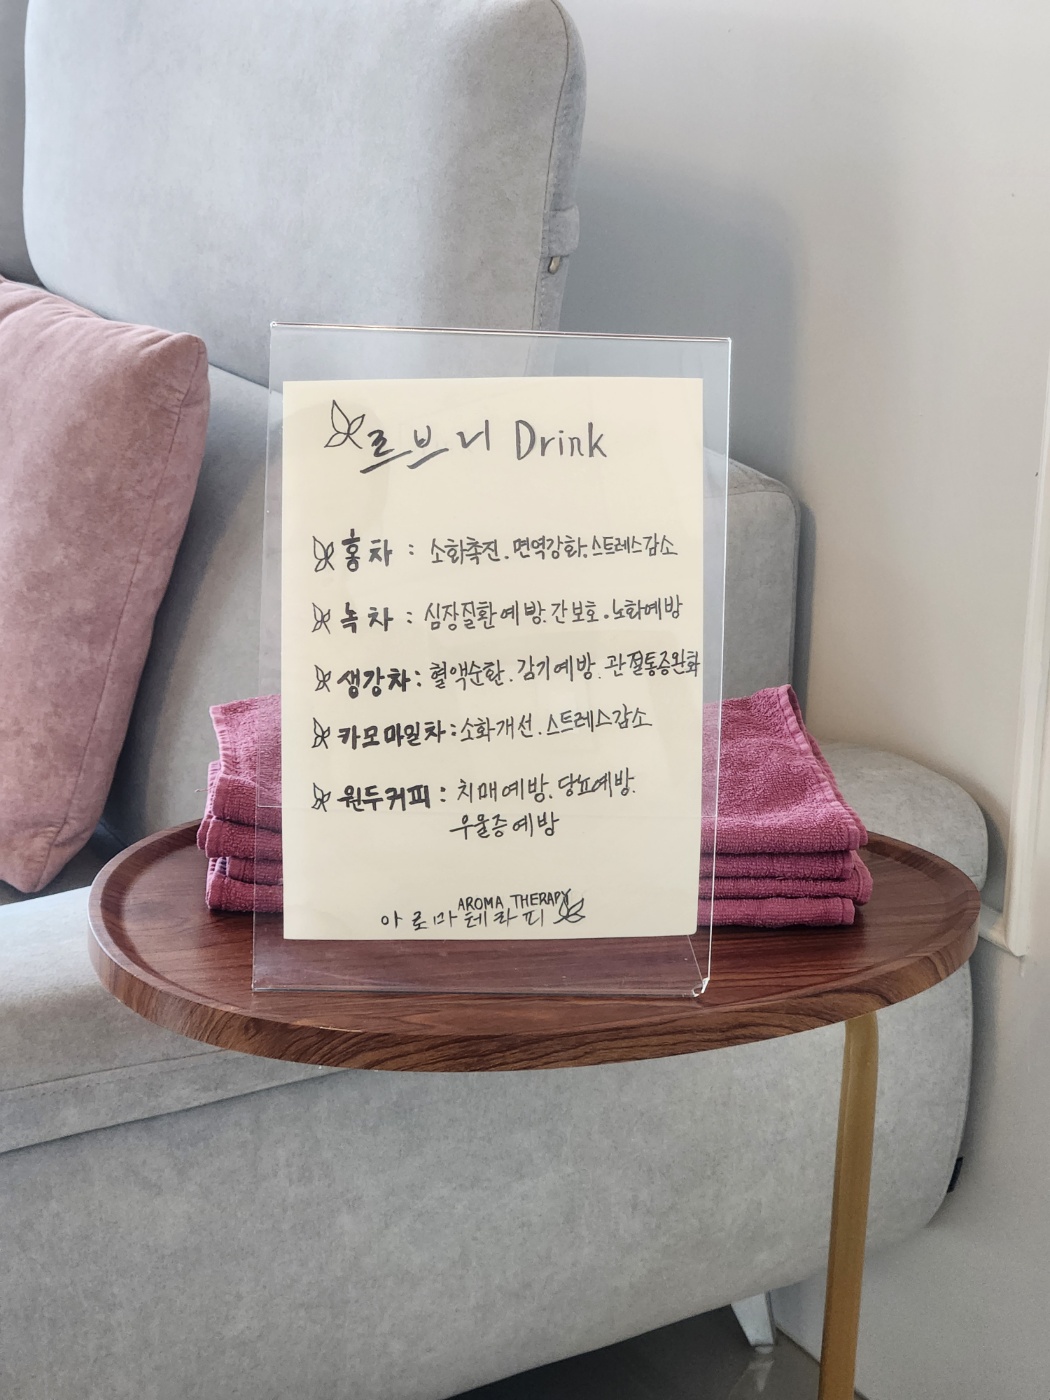 르브니 Drink
홍차 : 소화촉진. 면역강화. 스트레스감소
녹차 : 심장질환예방. 간보호. 노화예방
생강차 : 혈액순환. 감기예방. 관절통증완화
카모마일차 : 소화개선. 스트레스감소
원두커피 : 치매예방. 당뇨예방.
우울증예방
AROMA THERAPY
아로마테라피